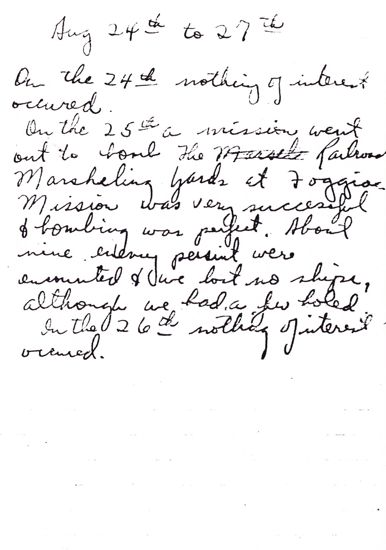 Aug 24th to 27th
On the 24th nothing of interest
occured.
On the 25th a mission went
out to bomb the Railroad
Marsheling Yards at Foggia.
Mission was very successful
& bombing was perfect. About
nine enemy were
& we lost no ships,
although we had a few holed
In the 26th nothing of interest
occured.